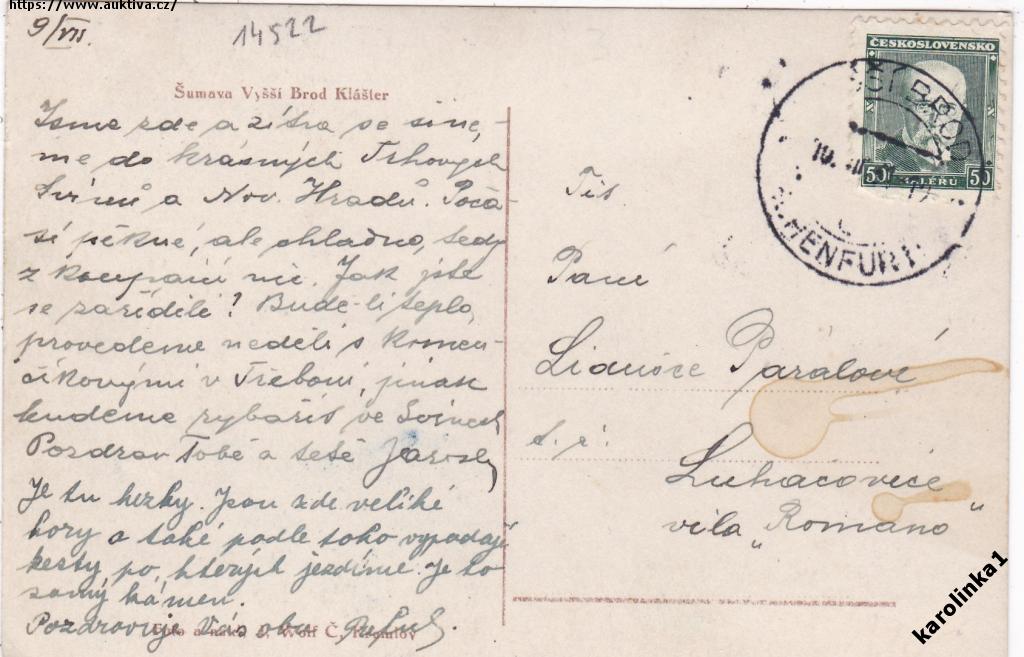 https://www.auktiva.cz/
9/VII.
14522
Šumava Vyšší Brod Klášter
Jsme zde a zítra se šine-
me do krásných Trhových
Svinů a Nov. Hradů. Počá-
sí pěkné, ale chladno, tedy
z koupání nic. Jak jste
se zařídili? Bude-li teplo,
provedeme neděli s
v Třeboni, jinak
budeme rybařit ve Svinech
Pozdrav Tobě a tetě
Je tu hezky. Jsou zde veliké
hory a také podle toho vypadají
cesty po kterých jezdíme. Je to
samý kámen.
Pozdravuje Vás oba
Foto a nákl. J. Wolf Č. Krumlov
ČESKOSLOVENSKO
50 HALÉŘŮ 50
ŠÍ BROD
HENFURT
Tit.
Paní
Lidušce Páralové
t. č.
Luhačovice
vila „Romano"
karolinka1